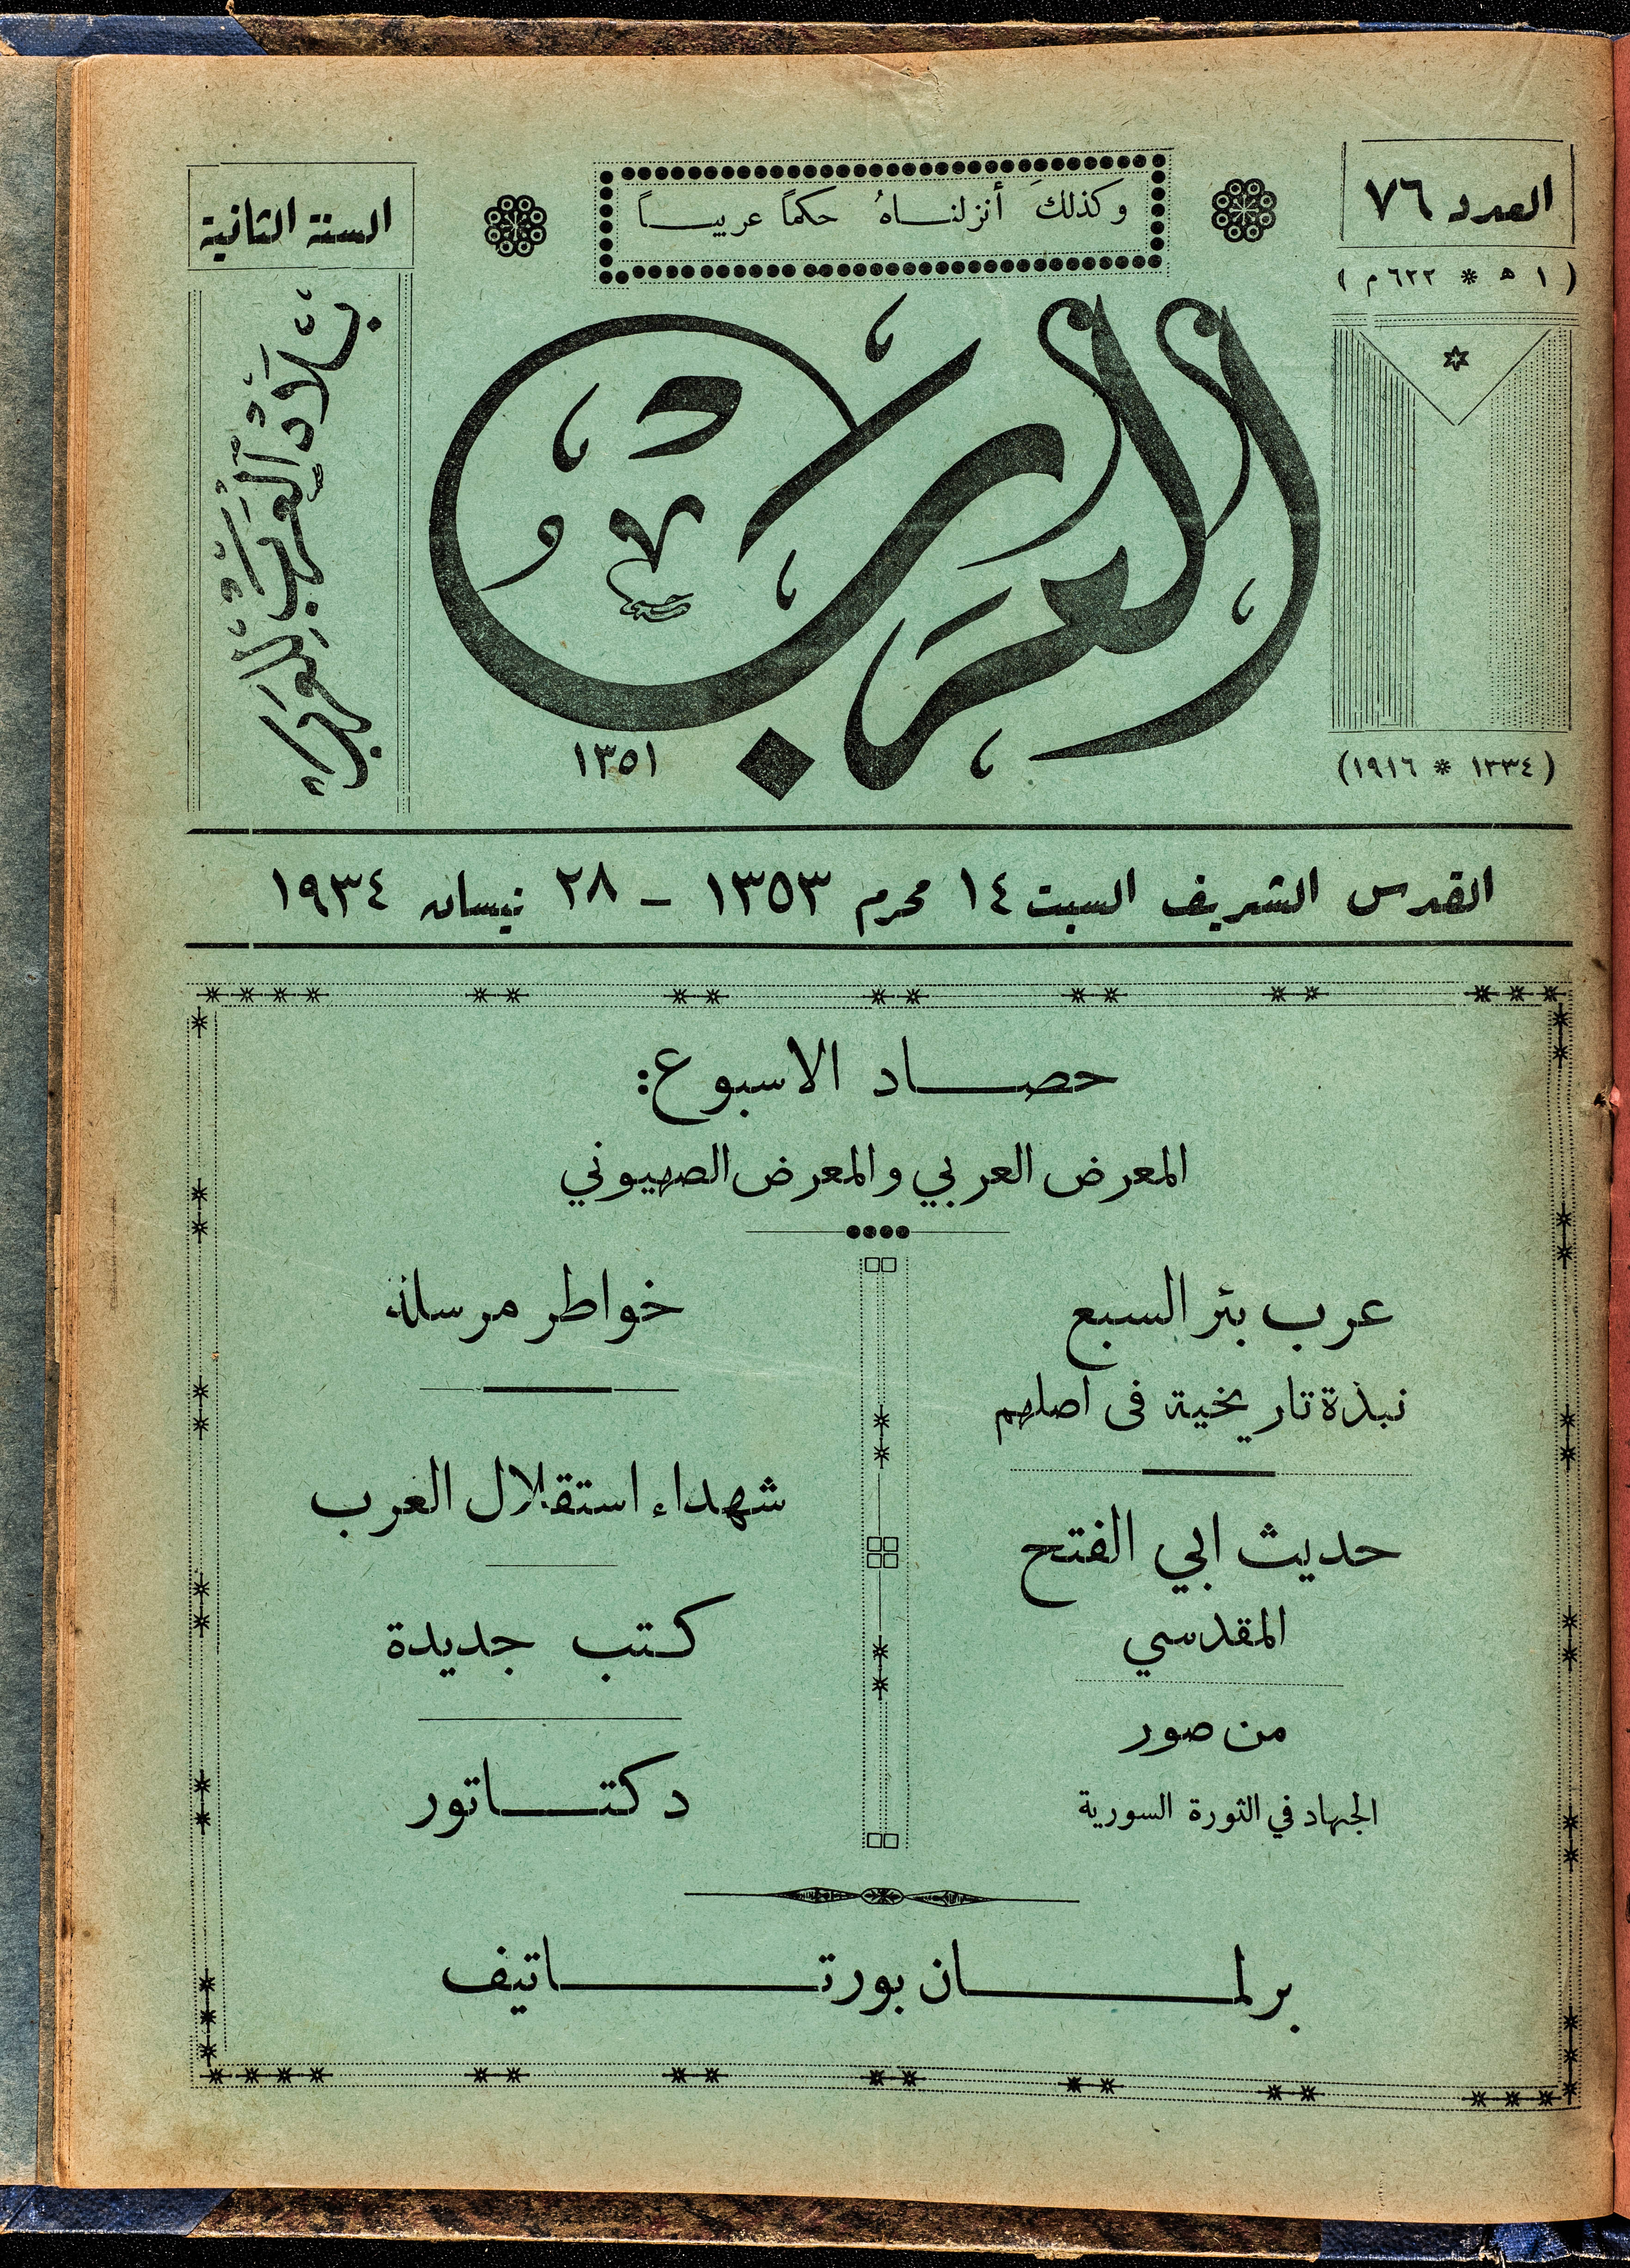 العدد ٧٦
وكذلكَ أنزلناهُ حكماً عربياً
السنة الثانية
( ١ ه * ٦٢٢ م )
العرب
١٣٥١
بلاد العرب للعرب
(١٣٣٤ * ١٩١٦)
القدس الشريف السبت ١٤ محرم ١٣٥٣ – ٢٨ نيسان ١٩٣٤
حصاد الاسبوع:
المعرض العربي والمعرض الصهيوني
عرب بئر السبع
نبذة تاريخية فى اصلهم
حديث ابي الفتح
المقدسي
من صور
الجهاد في الثورة السورية
خواطر مرسلة
شهداء استقلال العرب
كتب جديدة
دكتاتور
برلمان بورتاتيف